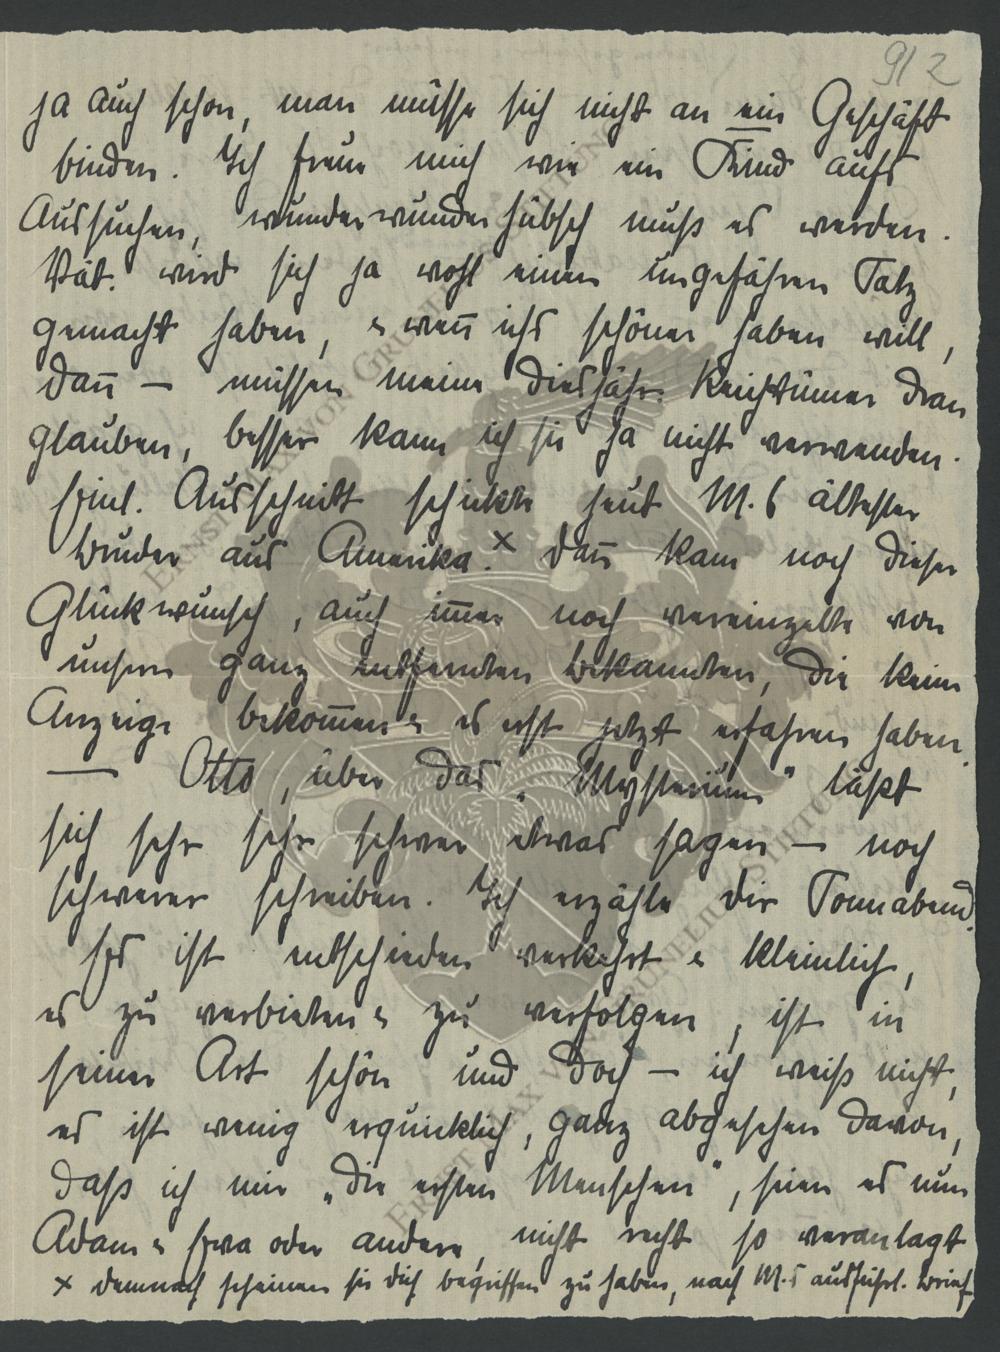 912
ja auch schon, man müsse sich nicht an ein Geschäft
binden. Ich freue mich wie ein Kind aufs
Aussuchen, wunderwunderhübsch muß es werden.
Vat. wird sich ja wohl einen ungefähren Satz
gemacht haben, & weñ ichs schöner haben will,
dañ — müssen meine diesjähr. Reichtümer dran
glauben, besser kann ich sie ja nicht verwenden.
Einl. Ausschnitt schickte heut M.s ältester
Bruder aus Amerika.× Dañ kam noch dieser
Glückwunsch, auch im̄er noch vereinzelte von
unsern ganz entfernten Bekannten, die keine
Anzeige bekom̄en & es erst jetzt erfahren haben.
— Otto, über das „Mysterium" läßt
sich sehr sehr schwer etwas sagen — noch
schwerer schreiben. Ich erzähle dir Sonnabend.
Es ist entschieden verkehrt & kleinlich,
es zu verbieten & zu verfolgen, ist in
seiner Art schön und doch — ich weiß nicht,
es ist wenig erquicklich, ganz abgesehen davon,
daß ich mir „die ersten Menschen", seien es nun
Adam & Eva oder andere, nicht recht so veranlagt
× demnach scheinen sie dich begriffen zu haben, nach M.s ausführl. Brief
ERNST MAX VON GRUNELIUS-STIFTUNG
ERNST MAX VON GRUNELIUS-STIFTUNG